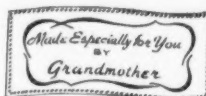 Made Especially for You
BY
Grandmother